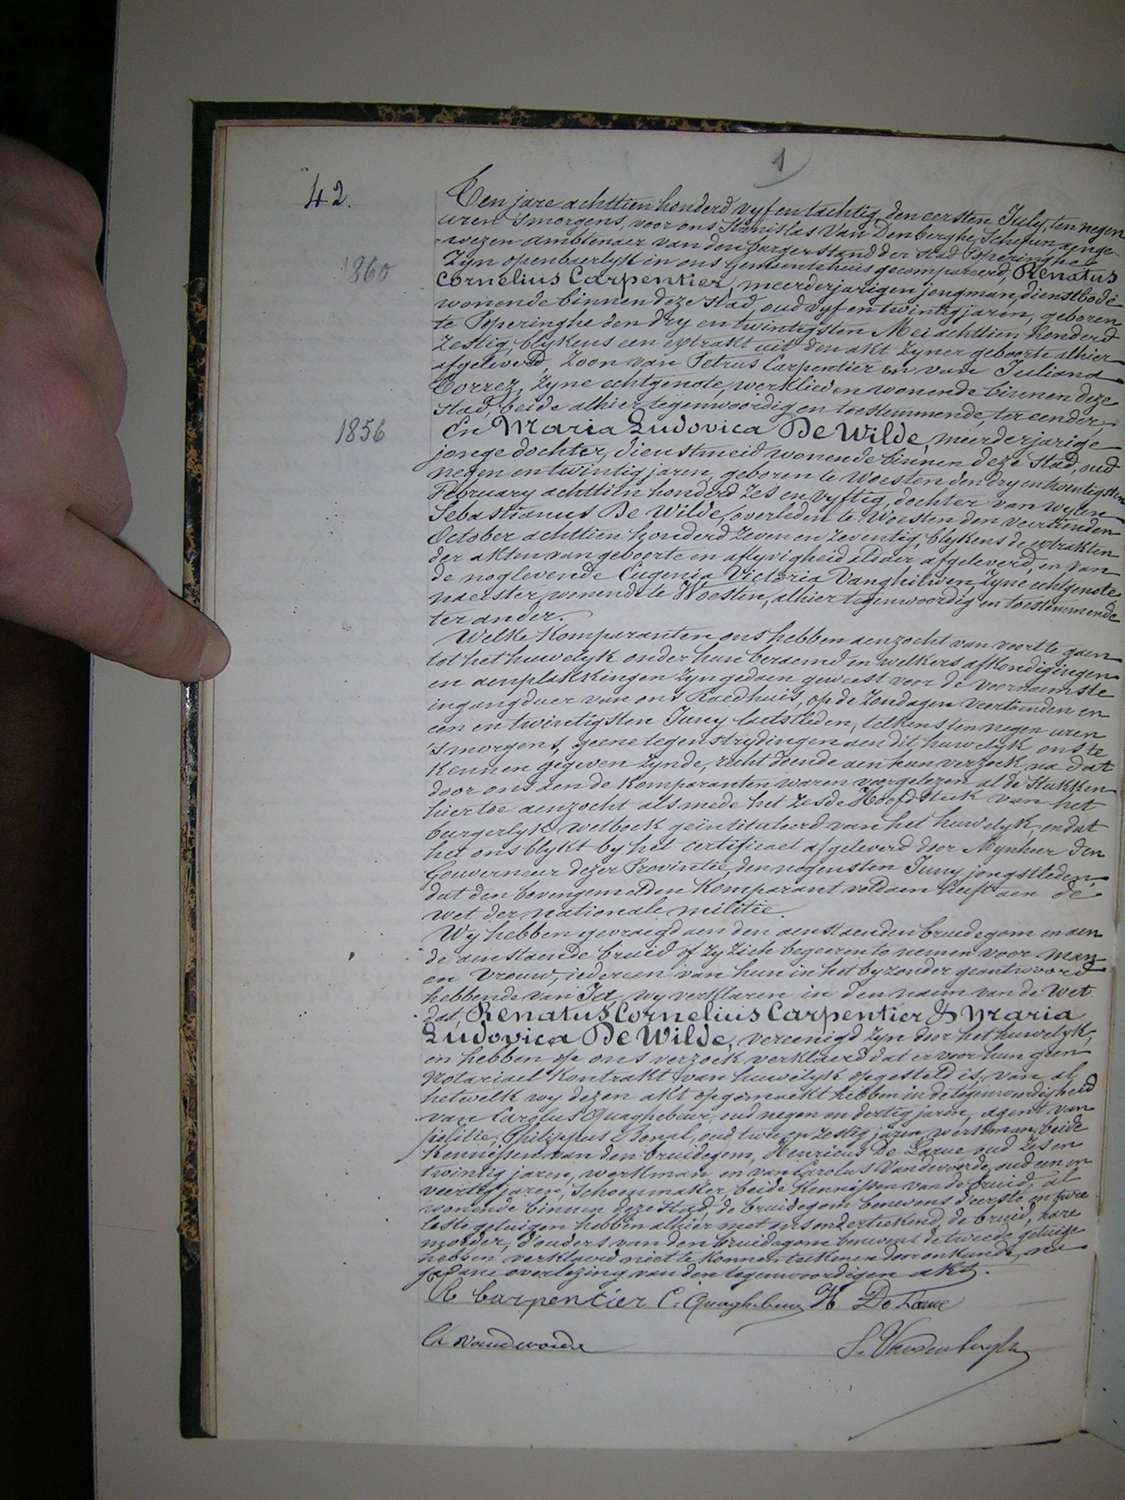 1
42.
Ten jare achttien honderd vyf en tachtig, den eersten July, ten negen
uren 's morgens, voor ons Stanislas Van Den Berghe, Schepen aenge-
wezen ambtenaer van den burgerstand der stad Poperinghe
Zyn openbaerlyk in ons gemeentehuis gecompareerd, Renatus
1860
Cornelius Carpentier, meerderjarigen jongman, dienstbode
wonende binnen deze stad, oud vyf en twintig jaren, geboren
te Poperinghe den dry en twintigsten Mei achttien honderd
zestig, blykens een extrakt uit den akt zyner geboorte alhier
afgeleverd, zoon van Petrus Carpentier en van Juliana
Torrez, zyne echtgenote, werklieden wonende binnen deze
stad, beide alhier tegenwoordig en toestemmende, ter eender,
1856
En Maria Ludovica De Wilde, meerderjarige
jonge dochter, dienstmeid wonende binnen deze stad, oud
negen en twintig jaren, geboren te Woesten den dry en twintigsten
February achttien honderd zes en vyftig, dochter van wylen
Sebastianus De Wilde, overleden te Woesten den veertienden
October achttien honderd zeven en zeventig, blykens de extrakten
der akten van geboorte en aflyvigheid aldaer afgeleverd, en van
de noglevende Eugenia Victoria Vanghilwen, zyne echtgenote
naeister, wonende te Woesten, alhier tegenwoordig en toestemmende
ter ander.
Welke komparanten ons hebben aenzocht van voort te gaen
tot het huwelyk onder hun beraemd en welkers afkondigingen
en aenplakkingen zyn gedaen geweest voor de voornaemste
ingangdeur van ons Raedhuis, op de zondagen veertienden en
een en twintigsten Juny laetstleden, telkens ten negen uren
'smorgens, geene tegenstrydingen aen dit huwelyk ons te
kennen gegeven zynde, recht doende aen hun verzoek na dat
door ons aen de komparanten waren voorgelezen al de stukken
hiertoe aenzocht alsmede het zesde Hoofdstuk van het
burgerlyk wetboek geïntituleerd van het huwelyk, en dat
het ons blykt by het certificaet afgeleverd door Mynheer den
Gouverneur dezer Provintie, den negensten Juny jongstleden,
dat den bovengemelden komparant voldaen heeft aen de
wet der nationale militie.
Wy hebben gevraegd aen den aenstaenden bruidegom en aen
de aenstaende bruid of zy zich begeeren te nemen voor man
en vrouw, iedereen van hun in het byzonder geantwoord
hebbende van Ja, wy verklaren in den naem van de Wet
dat, Renatus Cornelius Carpentier & Maria
Ludovica De Wilde, vereenigd zyn door het huwelyk,
en hebben op ons verzoek verklaerd dat er voor hun geen
Notariael kontrakt van huwelyk opgesteld is, van al
hetwelk wy dezen akt opgemaekt hebben in de tegenwoordigheid
van Carolus Quaghebeur, oud negen en dertig jaren, agent van
politie, Philippus oud twee en zestig jaren, werkman, beide
kennissen van den bruidegom, Henricus De Laeue oud zes en
twintig jaren, werkman en van Carolus Vandevoorde, oud een en
veertig jaren, schoenmaker, beide kennissen van de bruid, al
wonende binnen deze stad, de bruidegom benevens d'eerste en twee
leste getuigen hebben alhier met ons onderteekend, de bruid, hare
moeder, d'ouders van den bruidegom benevens de tweede getuige
hebben verklaerd niet te konnen teekenen door onkunde, na
gedane overlezing van den tegenwoordigen akt.
R Carpentier C. Quaghebeur H De Laeue
Ch Vandevoorde S. Vandenberghe